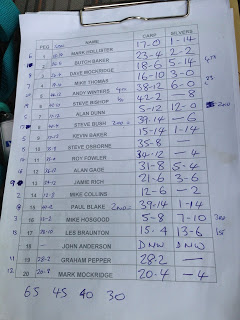 PEG NAME CARP SILVERS
1 MARK HOLLISTER 17-0 1-14
2 BUTCH BAKER 23-4 2-2
3 DAVE MOCKRIDGE 18-6 5-14
4 MIKE THOMAS 16-10 3-0
5 ANDY WINTERS 38-12 6-0
6 STEVE BISHOP 42-2 -8
7 ALAN DUNN 5-12 12-0 2ND
8 STEVE BUSH 39-14 -6
9 KEVIN BAKER 15-14 1-14
10 STEVE OSBORNE 35-8 —
11 ROY FOWLER 34-12 -4
12 ALAN GAGE 31-8 5-4
13 JAMIE RICH 21-6 3-6
14 MIKE COLLINS 12-6 -2
15 PAUL BLAKE 39-14 1-14
16 MIKE HOSGOOD 5-8 7-10 3RD
17 LES BRAUNTON 15-4 13-6 1ST
18 JOHN ANDERSON DNW DNW
19 GRAHAM PEPPER 28-2 —
20 MARK MOCKRIDGE 20-4 -4
65 45 40 30